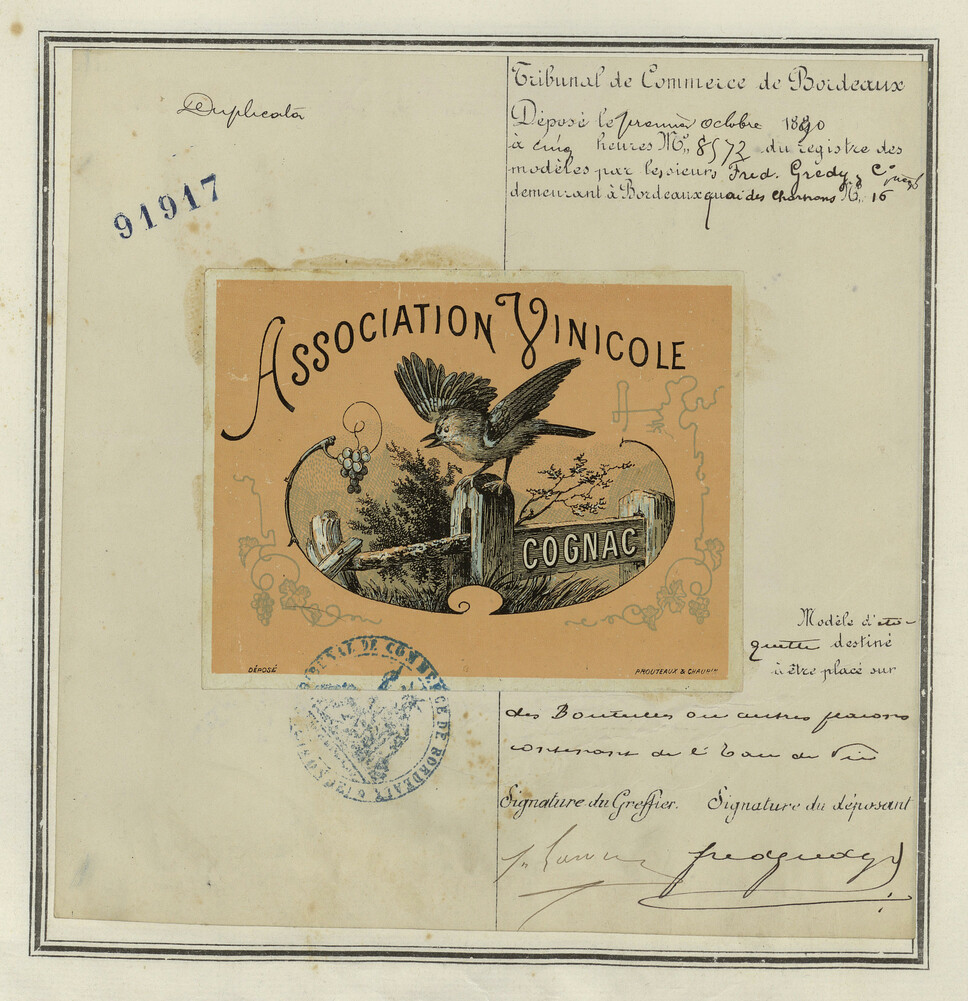 Duplicata
91917
Tribunal de Commerce de Bordeaux
Déposé le premier octobre 1890
à cinq heures N° 8572 du registre des
modèles par les sieurs Fred. Gredy, Cie
demeurant à Bordeaux quai des Chartrons N° 16
ASSOCIATION VINICOLE
COGNAC
DÉPOSÉ
PROUTEAUX &
Modèle d'éti-
quette destiné
à être placé sur
des Bouteilles ou autres flacons
contenant de l'Eau de Vie
TRIBUNAL DE COMMERCE DE BORDEAUX
Signature du Greffier. Signature du déposant
fredgredy